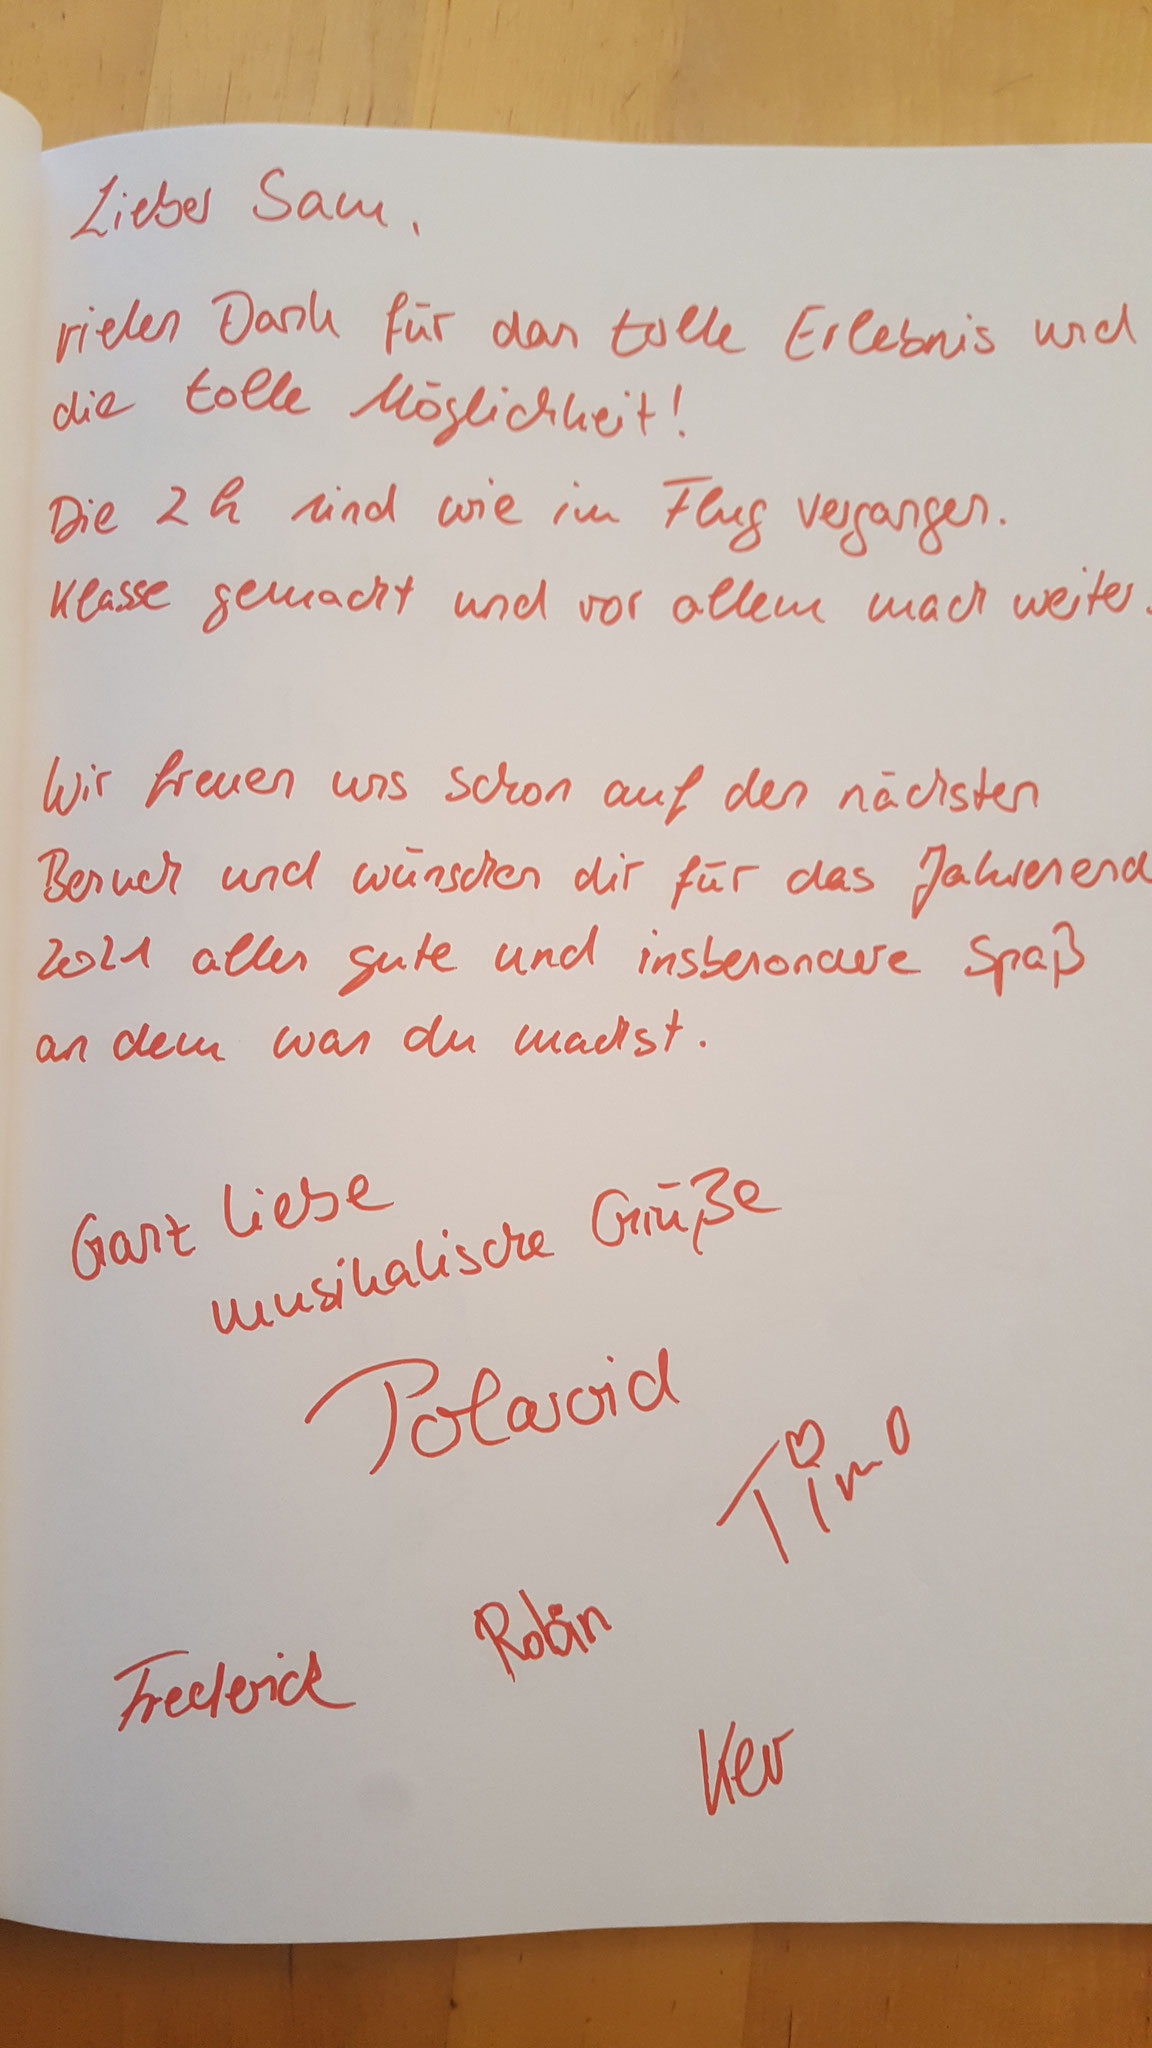 Lieber Sam,
vielen Dank für das tolle Erlebnis und
die tolle Möglichkeit!
Die 2h sind wie im Flug vergangen.
Klasse gemacht und vor allem mach weiter.
Wir freuen uns schon auf den nächsten
Besuch und wünschen dir für das Jahresend
2021 alles gute und insbesondere Spaß
an dem was du machst.
Ganz liebe
musikalische Grüße
Polaroid
Timo
Robin
Frederick
Kev